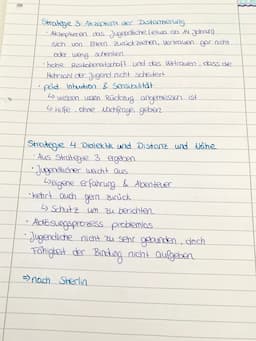 Strategie 3: Akzeptanz der Distanzierung
· Akzeptieren, das Jugendliche (etwa ab 14 Jahren)
sich von Eltern zurückziehen, Vertrauen gar nicht
oder wenig schenken
· hohe Risikobereitschaft und das Vertrauen, dass die
Mehrzahl der Jugend nicht scheitert
· gold Intuition & Sensibilität
↳ wissen wann Rückzug angemessen ist
↳ Hilfe ohne Nachfrage geben
Strategie 4 Dialektik und Distanz und Nähe
· Aus Strategie 3 ergeben
· Jugendlicher wächst aus
↳ eigene Erfahrung & Abenteuer
· kehrt auch gern zurück
↳ Schutz um zu berichten
· Ablösungsprozess problemlos
· Jugendliche nicht zu sehr gebunden, doch
Fähigkeit der Bindung nicht aufgeben
⇒ nach Stierlin